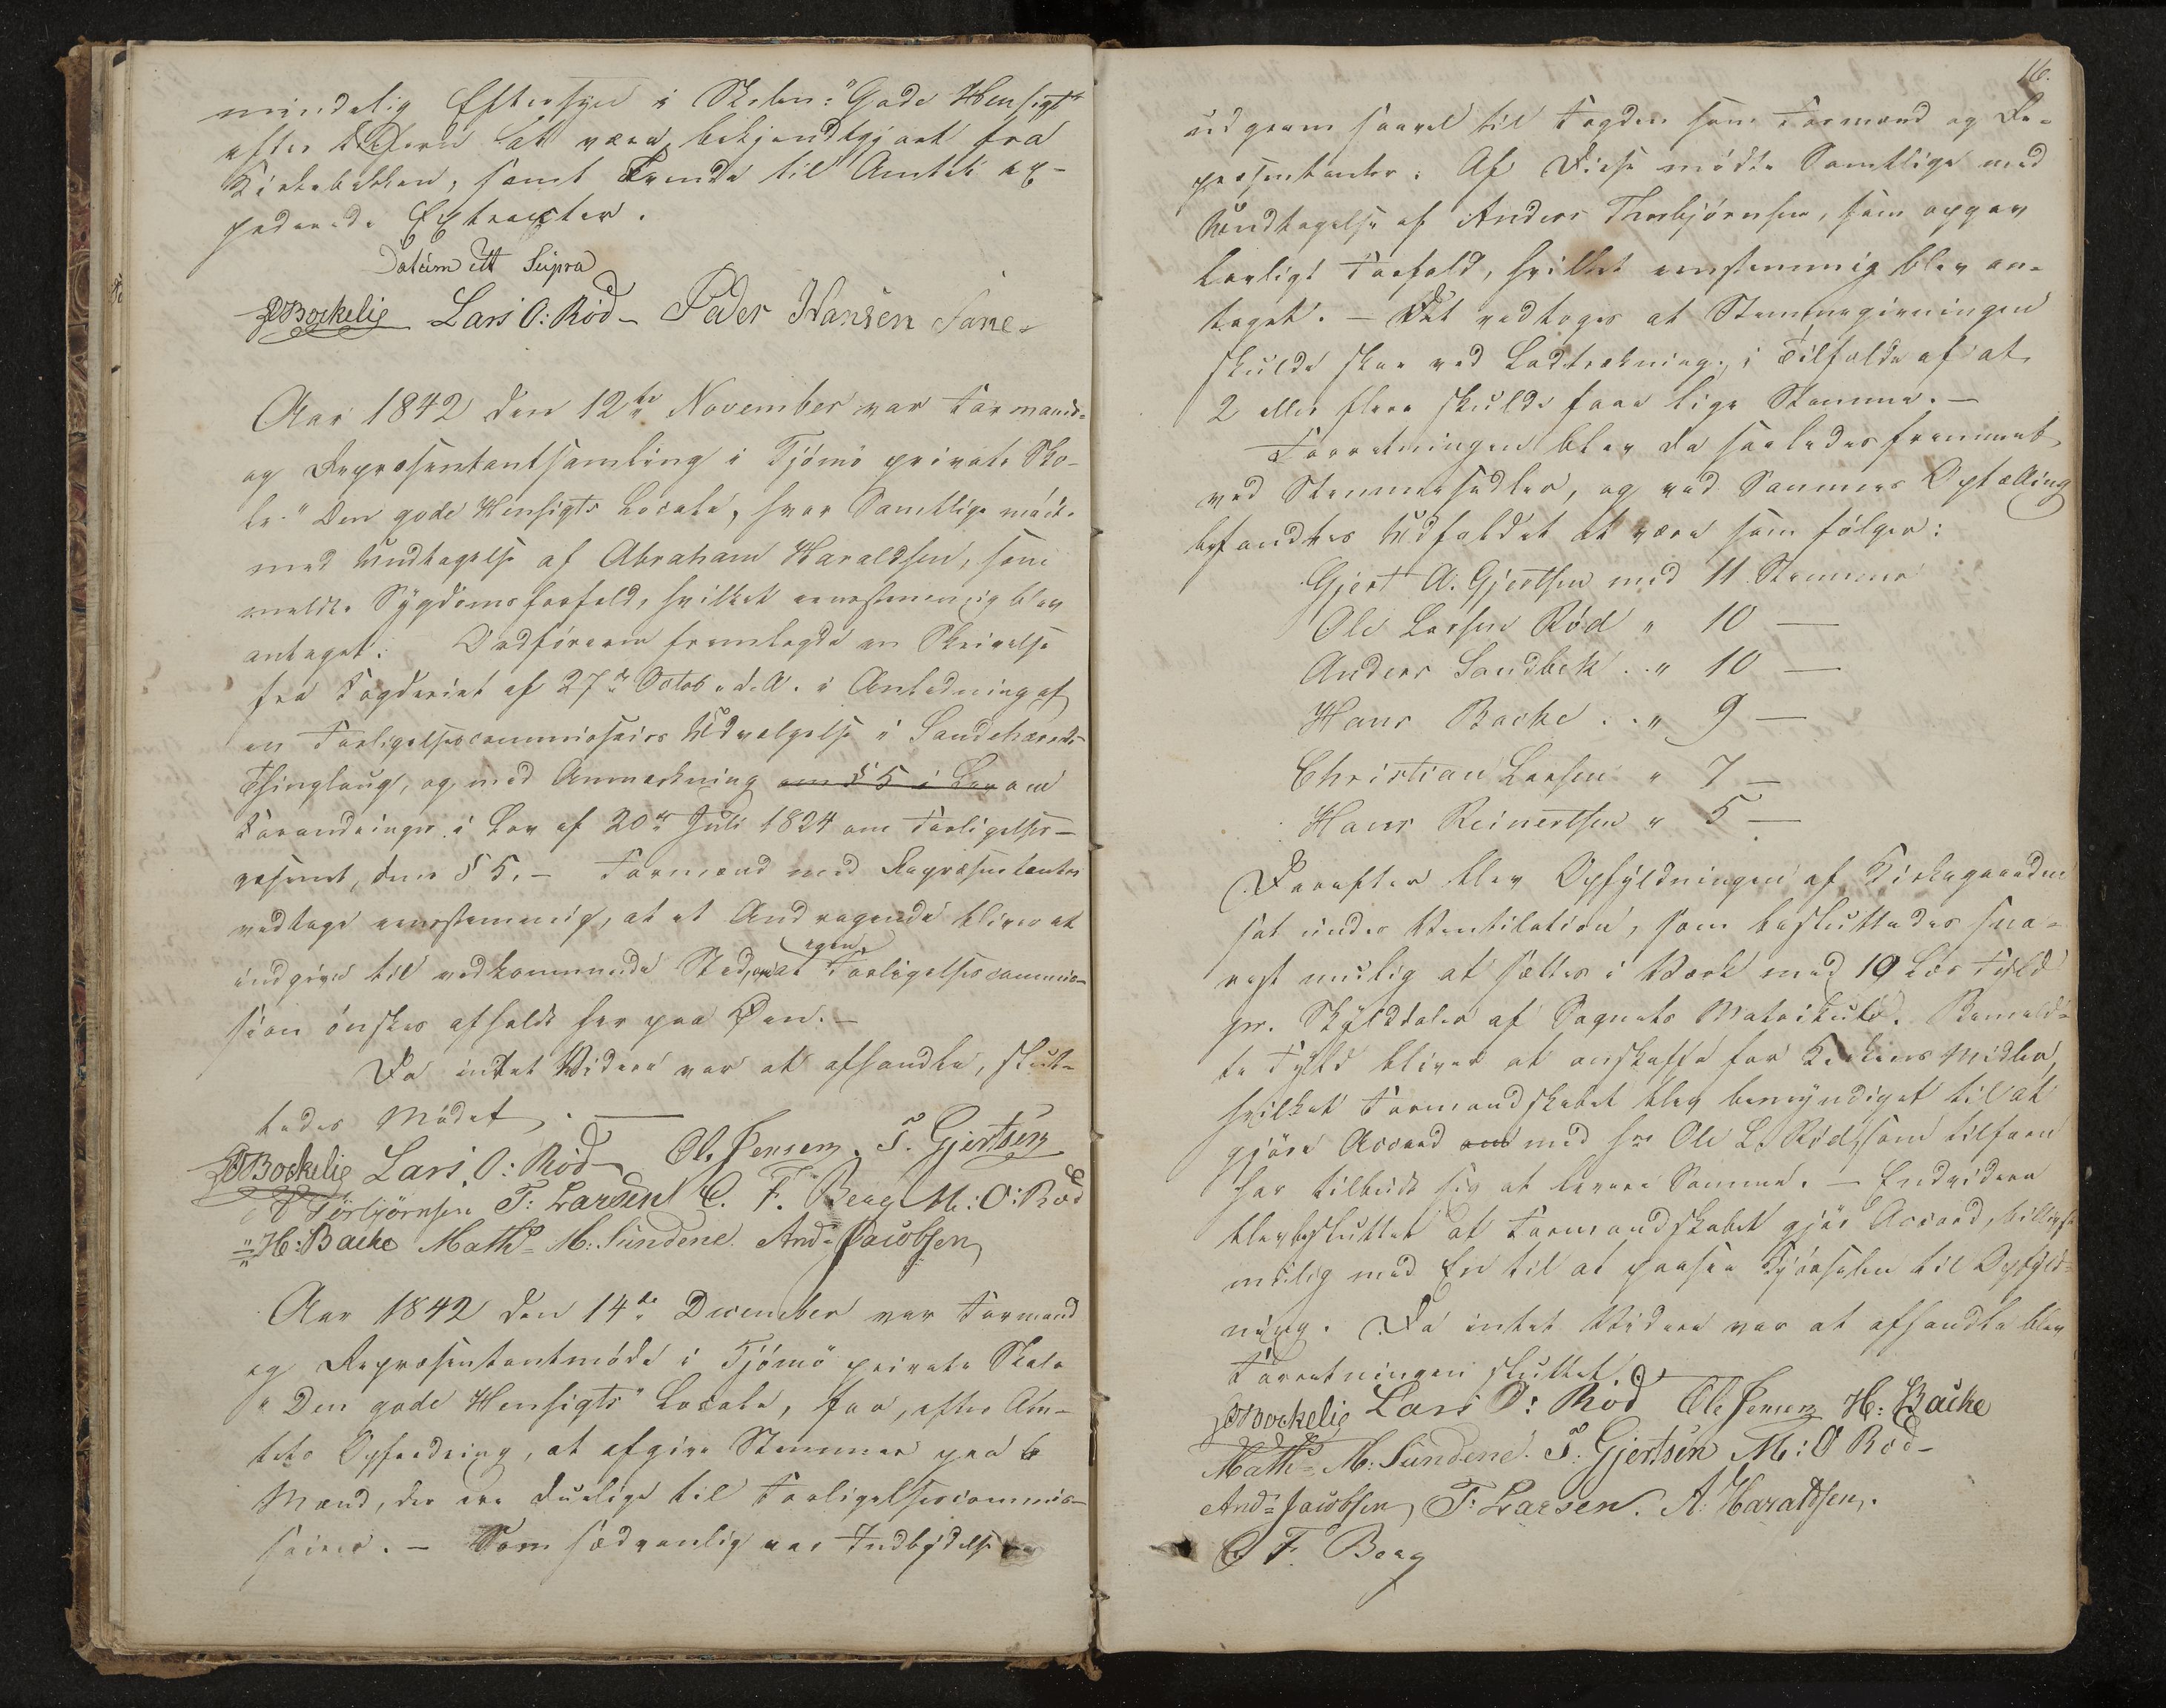 mindelig Eftersyn i Skolen: "Gode Hensigt"
efter Aaret at være bekjendtgjort fra
Kirkebakken, samt trende til Amtet ex-
pederede Extracter.
Datum ut Supra
Bockelie Lars O: Röd- Peder Hansen
Aar 1842 den 12te November var Formands-
og Repræsentantsamling i Tjömö private Sko-
le "Den gode Hensigts Locale, hvor Samtlige mødte
med Undtagelse af Abraham Haraldsen, som
meldte Sygdomsforfald, hvilket eenstemmig blev
antaget. Ordföreren fremlagde en Skrivelse
fra Fogderiet af 27de Octob. d. A. i Anledning af
en Forligelsescommissairs Udvælgelse i Sandeherreds
Thinglaug, og med Anmerkning om § 5 i Lov om
Forandringer i Lov af 20de Juli 1824 om Forligelses-
væsenet, dens § 5. - Formænd med Repræsentanter
vedtage eenstemmig, at et Andragende bliver at
indgive til vedkommende Sted, at egen Forligelsescommis-
sion önskes afholdt her paa Øen. -
Da intet Videre var at afhandle, slut-
tedes Mödet.
Bockelie Lars O: Röd- Ole Jensen. T. Gjertsen
Törbjörnsen T: Larsen C. F. Berg M: O: Röd
H: Backe Maths M: Sundene Ands Jacobsen
Aar 1842 den 14de December var Formand
og Repræsentantmöde i Tjömö private Skole
"Den gode Hensigts" Locale, for, efter Am-
tets Opfordring, at afgive Stemmer paa 6
Mænd, der ere duelige til Forligelsescommis-
sairer. - Som sædvanlig var Indbydelse
16.
udgaaen saavel til Fogden som Formænd og Re-
præsentanter. Af Disse mödte Samtlige med
Undtagelse af Anders Thorbjørnsen, som opgav
lovligt Forfald, hvilket eenstemmig blev an-
taget. - Det vedtoges at Stemmegivningen
skulde skee ved Lodtrækning, i Tilfælde af at
2 eller flere skulde faae lige Stemme. -
Forretningen blev da saaledes fremmet
ved Stemmesedler, og ved Sammes Optælling
befandtes Udfaldet at være som følger:
Gjert A. Gjertsen med 11 Stemmer
Ole Larsen Röd " 10 -
Anders Sandbek . . " 10 -
Hans Backe . . " 9 -
Christian Larsen " 7 -
Hans Reinertsen " 5 -
Derefter blev Opfyldningen af Kirkegaarden
sat under Ventilation, som besluttedes sna-
rest muelig at sættes i Værk med 10 Læs Fyld
pr. Skylddaler af Sognets Matrikul. Bemeld-
te Fyld bliver at anskaffe for Kirkens Midler,
hvilket Formandskabet blev bemyndiget til at
gjöre Accord om med Hr Ole L. Röd, som tilforn
har tilbudt sig at levere Samme. - Endvidere
blev besluttet at Formandskabet gjör Accord, billigst
muelig med En til at paasee Kjörselen til Opfyld-
ning. Da intet Videre var at afhandle blev
Forretningen sluttet.
Bockelie Lars O: Röd Ole Jensen H: Backe
Maths M: Sundene. T. Gjertsen M: O Röd-
Ands Jacobsen T: Larsen. A. Haraldsen.
C. F. Berg